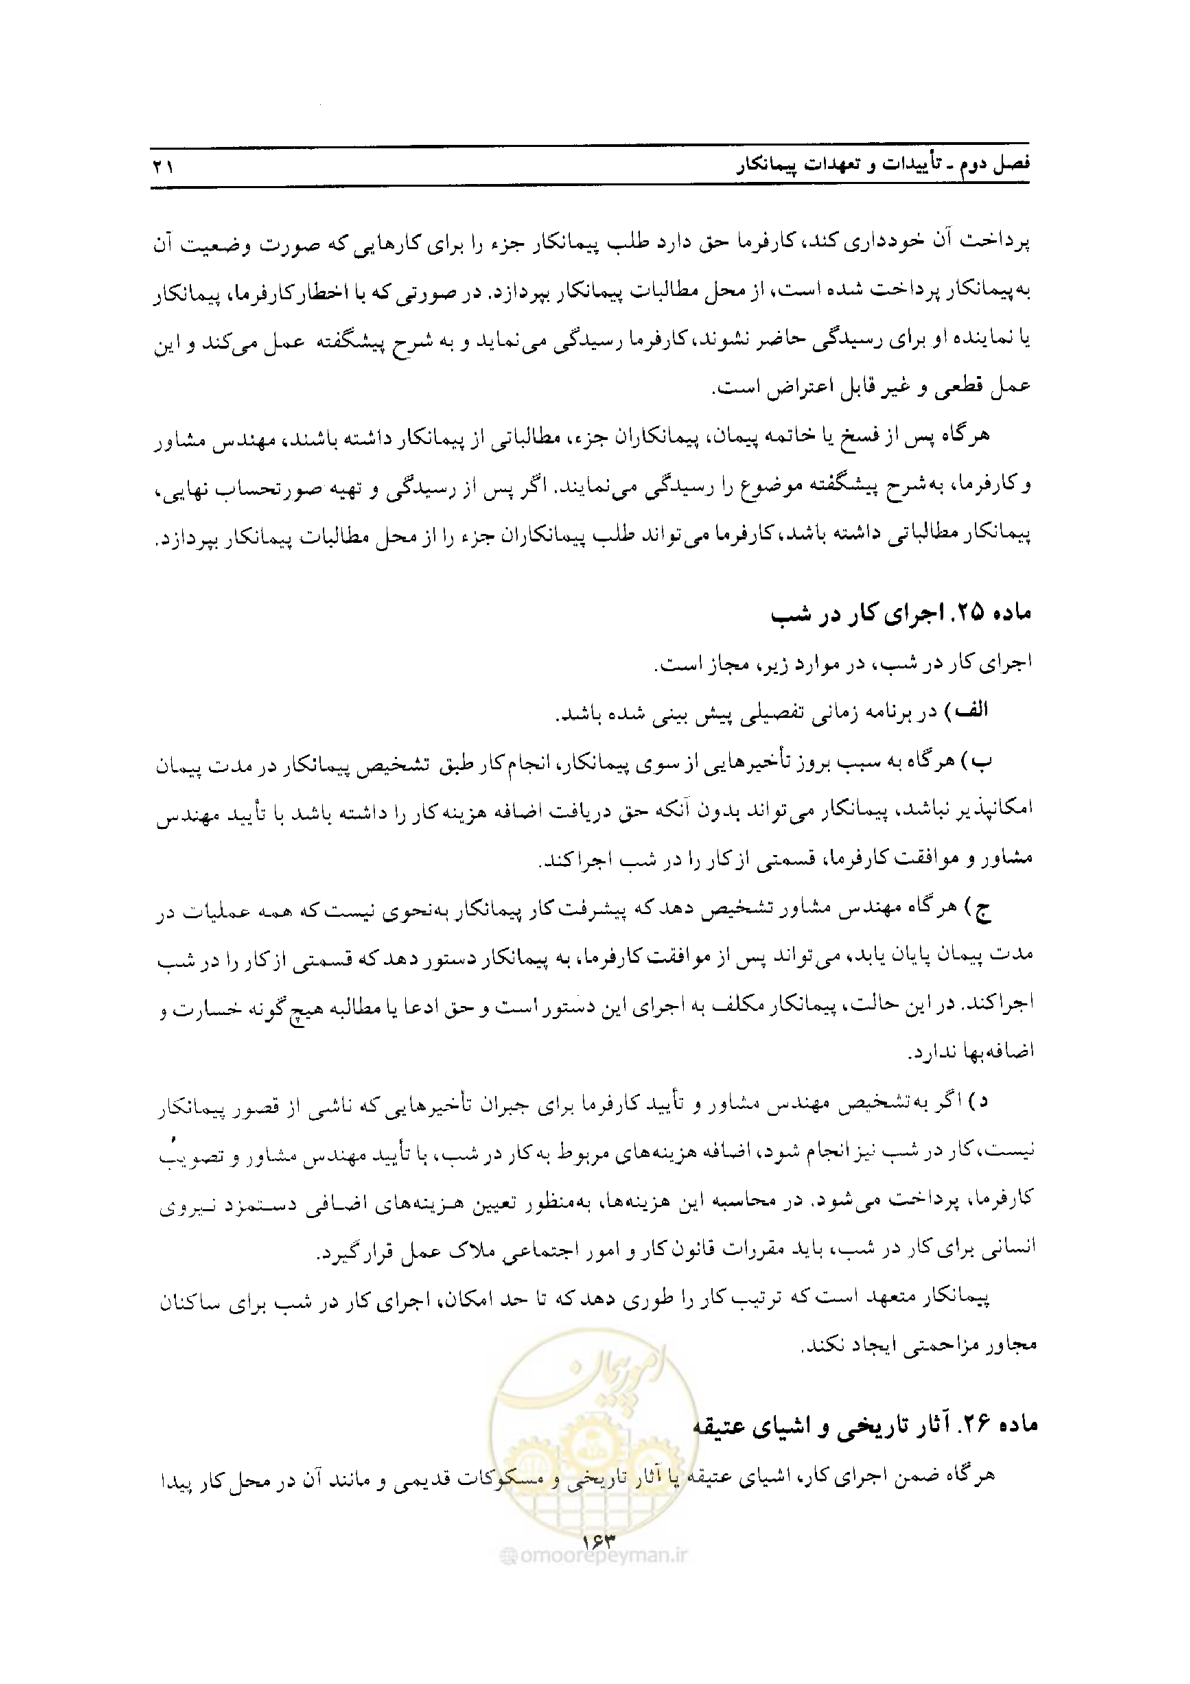 فصل دوم ـ تأییدات و تعهدات پیمانکار ۲۱
پرداخت آن خودداری کند، کارفرما حق دارد طلب پیمانکار جزء را برای کارهایی که صورت وضعیت آن
به‌پیمانکار پرداخت شده است، از محل مطالبات پیمانکار بپردازد. در صورتی که با اخطار کارفرما، پیمانکار
یا نماینده او برای رسیدگی حاضر نشوند، کارفرما رسیدگی می‌نماید و به شرح پیشگفته عمل می‌کند و این
عمل قطعی و غیر قابل اعتراض است.
هرگاه پس از فسخ یا خاتمه پیمان، پیمانکاران جزء، مطالباتی از پیمانکار داشته باشند، مهندس مشاور
و کارفرما، به‌شرح پیشگفته موضوع را رسیدگی می‌نمایند. اگر پس از رسیدگی و تهیه صورتحساب نهایی،
پیمانکار مطالباتی داشته باشد، کارفرما می‌تواند طلب پیمانکاران جزء را از محل مطالبات پیمانکار بپردازد.
ماده ۲۵. اجرای کار در شب
اجرای کار در شب، در موارد زیر، مجاز است.
الف) در برنامه زمانی تفصیلی پیش بینی شده باشد.
ب) هرگاه به سبب بروز تأخیرهایی از سوی پیمانکار، انجام کار طبق تشخیص پیمانکار در مدت پیمان
امکانپذیر نباشد، پیمانکار می‌تواند بدون آنکه حق دریافت اضافه هزینه کار را داشته باشد با تأیید مهندس
مشاور و موافقت کارفرما، قسمتی از کار را در شب اجرا کند.
ج) هرگاه مهندس مشاور تشخیص دهد که پیشرفت کار پیمانکار به‌نحوی نیست که همه عملیات در
مدت پیمان پایان یابد، می‌تواند پس از موافقت کارفرما، به پیمانکار دستور دهد که قسمتی از کار را در شب
اجرا کند. در این حالت، پیمانکار مکلف به اجرای این دستور است و حق ادعا یا مطالبه هیچ گونه خسارت و
اضافه‌بها ندارد.
د) اگر به‌تشخیص مهندس مشاور و تأیید کارفرما برای جبران تأخیرهایی که ناشی از قصور پیمانکار
نیست، کار در شب نیز انجام شود، اضافه هزینه‌های مربوط به کار در شب، با تأیید مهندس مشاور و تصویب
کارفرما، پرداخت می‌شود. در محاسبه این هزینه‌ها، به‌منظور تعیین هزینه‌های اضافی دستمزد نیروی
انسانی برای کار در شب، باید مقررات قانون کار و امور اجتماعی ملاک عمل قرار گیرد.
پیمانکار متعهد است که ترتیب کار را طوری دهد که تا حد امکان، اجرای کار در شب برای ساکنان
مجاور مزاحمتی ایجاد نکند.
امور پیمان
ماده ۲۶. آثار تاریخی و اشیای عتیقه
هرگاه ضمن اجرای کار، اشیای عتیقه یا آثار تاریخی و مسکوکات قدیمی و مانند آن در محل کار پیدا
۱۶۳
@omoorepeyman.ir